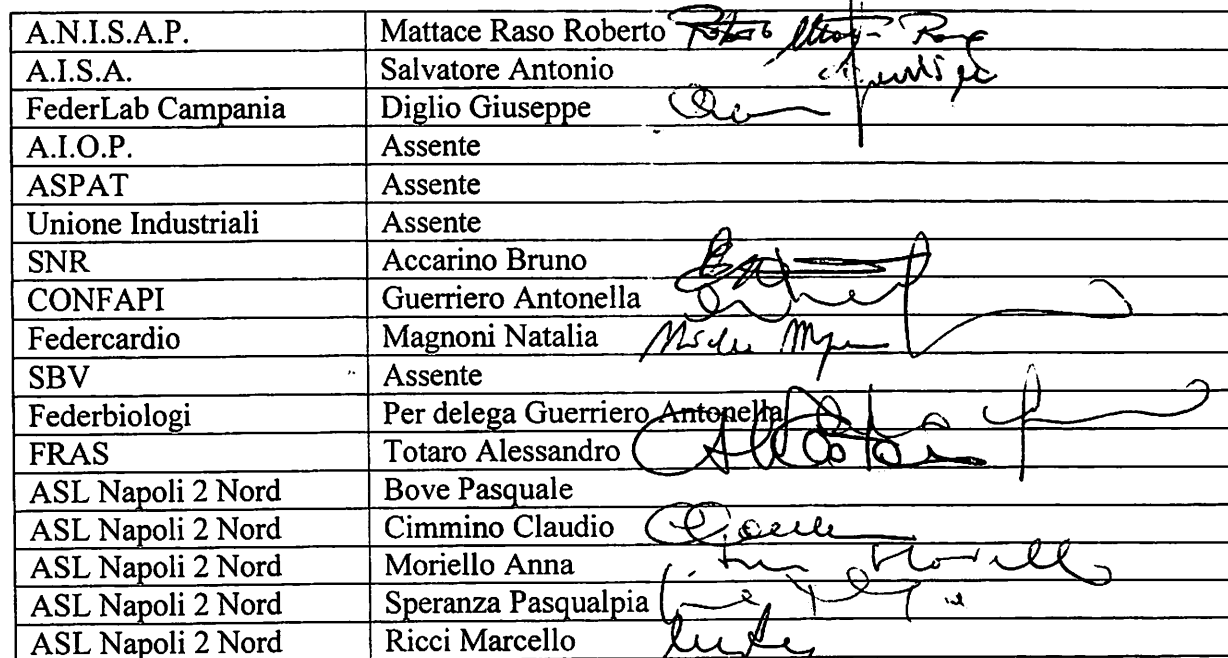 A.N.I.S.A.P. Mattace Raso Roberto
A.I.S.A. Salvatore Antonio
FederLab Campania Diglio Giuseppe
A.I.O.P. Assente
ASPAT Assente
Unione Industriali Assente
SNR Accarino Bruno
CONFAPI Guerriero Antonella
Federcardio Magnoni Natalia
SBV Assente
Federbiologi Per delega Guerriero Antonella
FRAS Totaro Alessandro
ASL Napoli 2 Nord Bove Pasquale
ASL Napoli 2 Nord Cimmino Claudio
ASL Napoli 2 Nord Moriello Anna
ASL Napoli 2 Nord Speranza Pasqualpia
ASL Napoli 2 Nord Ricci Marcello